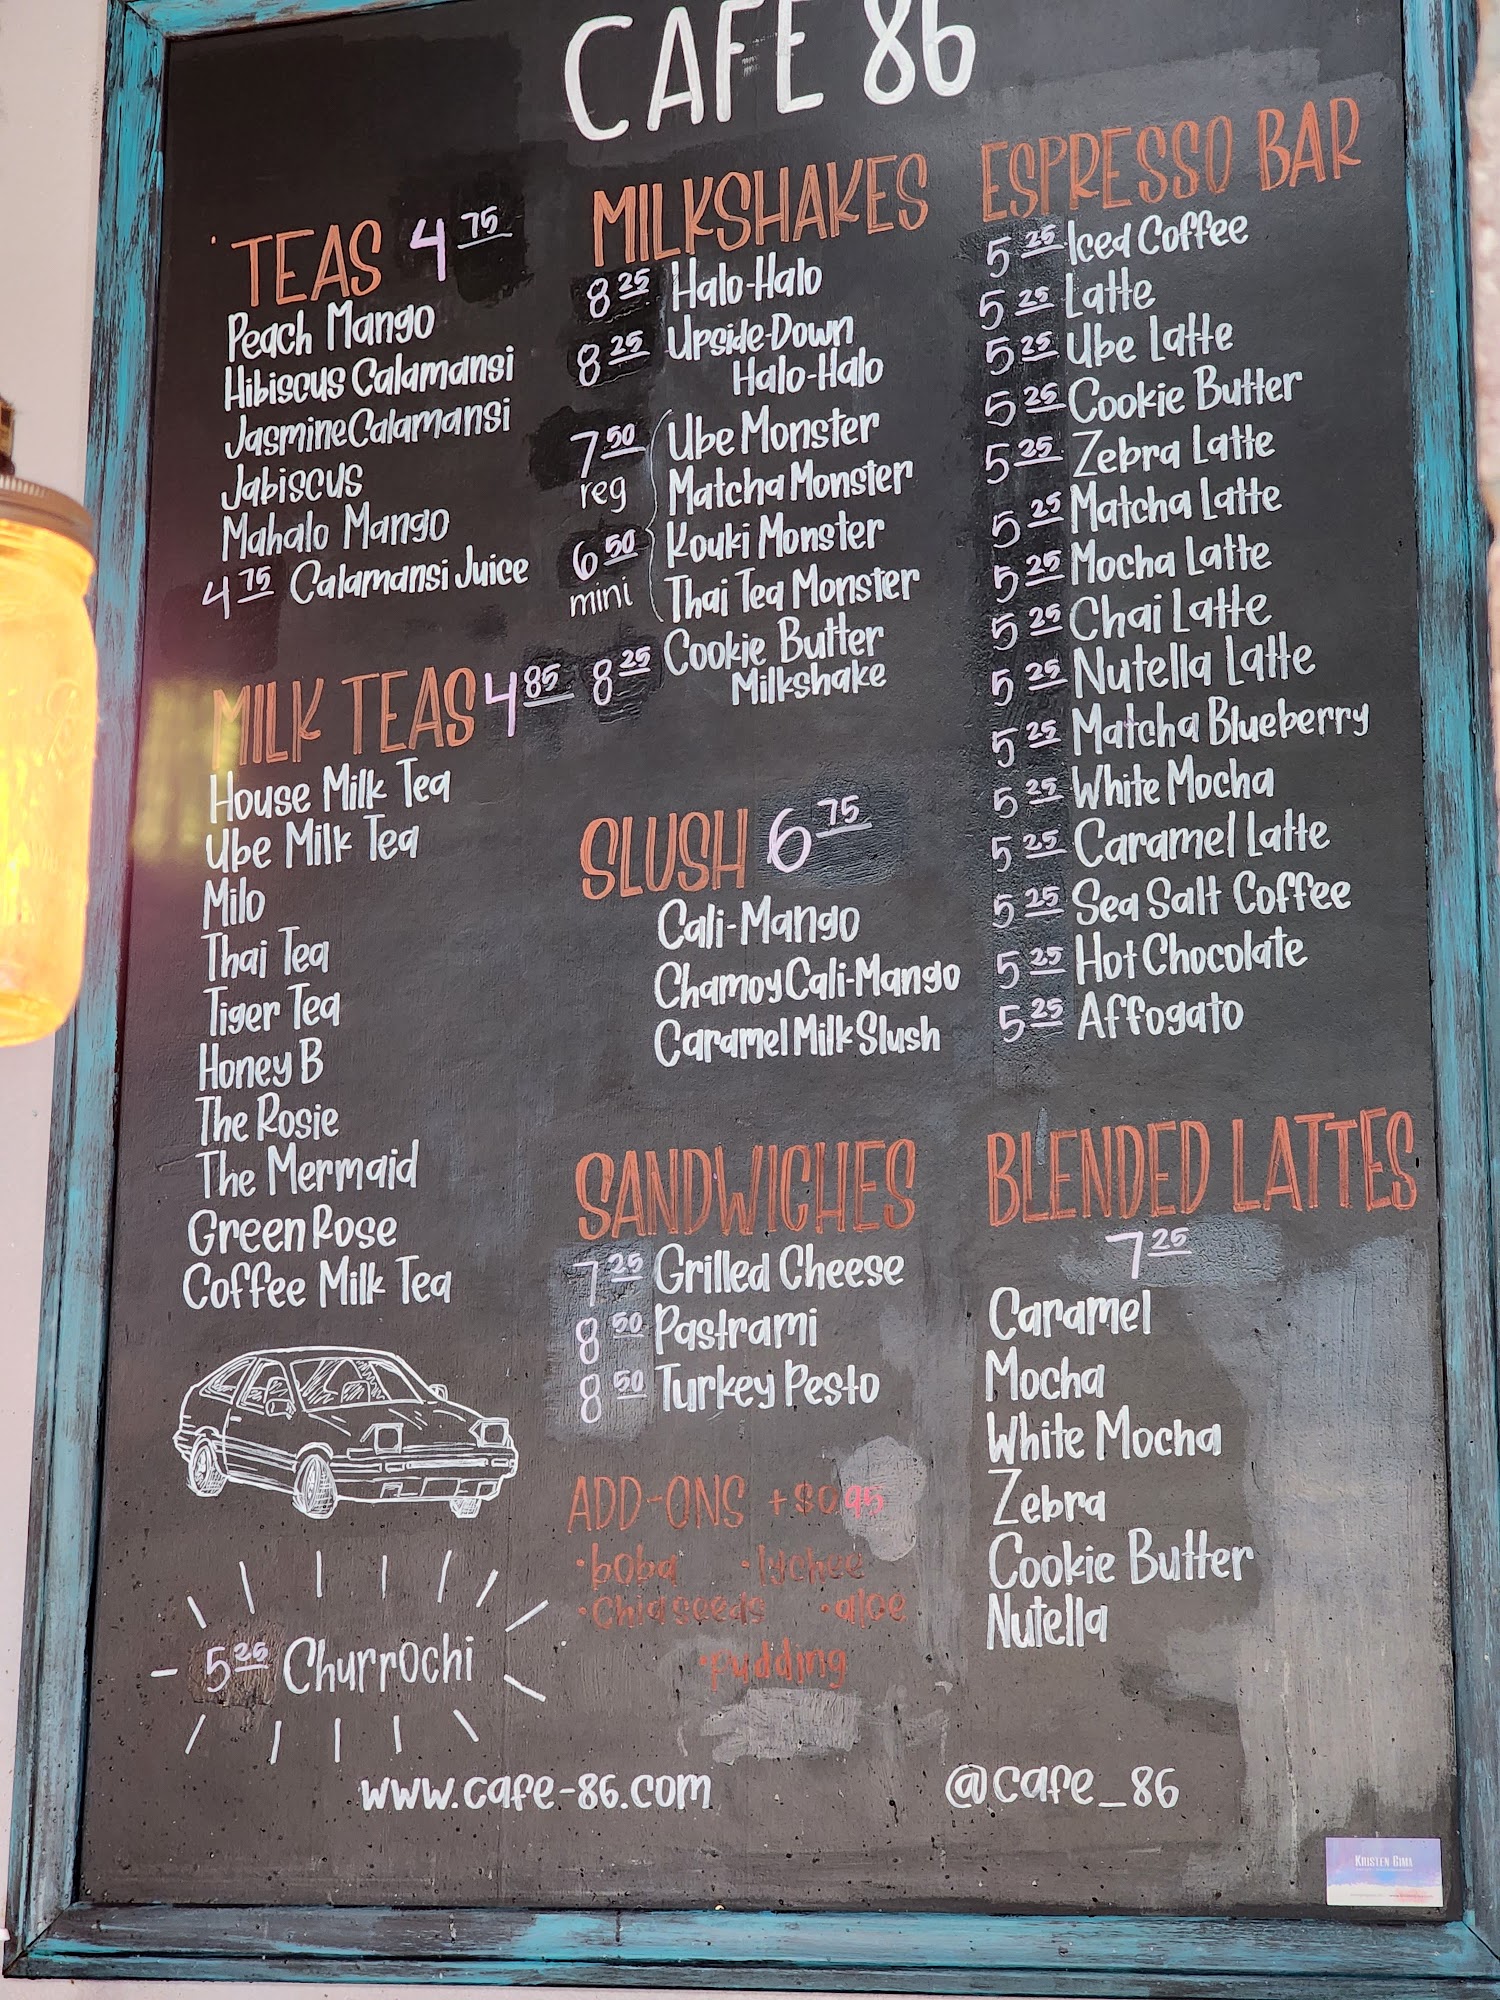 CAFE 86
TEAS 4 75
Peach Mango
Hibiscus Calamansi
Jasmine Calamansi
Jabiscus
Mahalo Mango
4 75 Calamansi Juice
MILK TEAS 4 85
House Milk Tea
Ube Milk Tea
Milo
Thai Tea
Tiger Tea
Honey B
The Rosie
The Mermaid
Green Rose
Coffee Milk Tea
5 25 Churrochi
MILKSHAKES
8 25 Halo-Halo
8 25 Upside-Down
Halo-Halo
7 50 Ube Monster
reg Matcha Monster
6 50 Kouki Monster
mini Thai Tea Monster
8 25 Cookie Butter
Milkshake
SLUSH 6 75
Cali-Mango
Chamoy Cali-Mango
Caramel Milk Slush
SANDWICHES
7 25 Grilled Cheese
8 50 Pastrami
8 50 Turkey Pesto
ADD-ONS +$0.95
•boba •lychee
•Chia seeds •aloe
•pudding
ESPRESSO BAR
5 25 Iced Coffee
5 25 Latte
5 25 Ube Latte
5 25 Cookie Butter
5 25 Zebra Latte
5 25 Matcha Latte
5 25 Mocha Latte
5 25 Chai Latte
5 25 Nutella Latte
5 25 Matcha Blueberry
5 25 White Mocha
5 25 Caramel Latte
5 25 Sea Salt Coffee
5 25 Hot Chocolate
5 25 Affogato
BLENDED LATTES
7 25
Caramel
Mocha
White Mocha
Zebra
Cookie Butter
Nutella
www.cafe-86.com
@cafe_86
KRISTEN GIMA